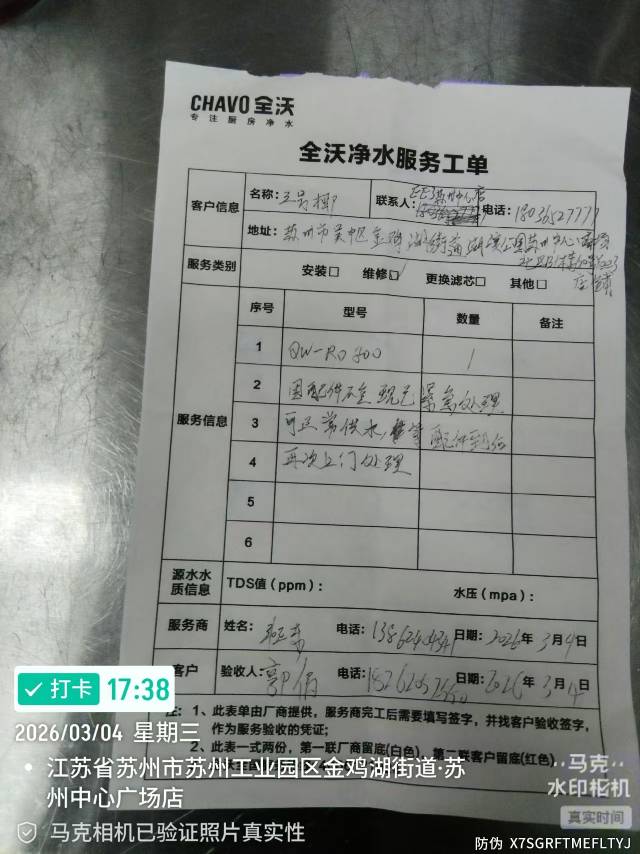 CHAVO 全沃
专注厨房净水
全沃净水服务工单
客户信息
名称：
联系人：
电话：18036527777
地址：苏州市吴中区金鸡湖街道湖滨公园苏州中心
服务类别
安装□ 维修□√ 更换滤芯□ 其他□
店铺
服务信息
序号 型号 数量 备注
1 QW-RO 800 1
2 因配件不全现已紧急处理
3 可正常供水, 配件到后
4 再次上门处理
5
6
源水水质信息
TDS值（ppm）： 水压（mpa）：
服务商 姓名： 电话： 日期：2026年3月4日
客户 验收人：郭倩 电话： 日期：2026年3月4日
注：1、此表单由厂商提供，服务商完工后需要填写签字，并找客户验收签字，
作为服务验收的凭证；
2、此表一式两份，第一联厂商留底(白色)，第二联客户留底(红色)
打卡 17:38
2026/03/04 星期三
江苏省苏州市苏州工业园区金鸡湖街道·苏
州中心广场店
马克相机已验证照片真实性
马克
水印相机
真实时间
防伪 X7SGRFTMEFLTYJ